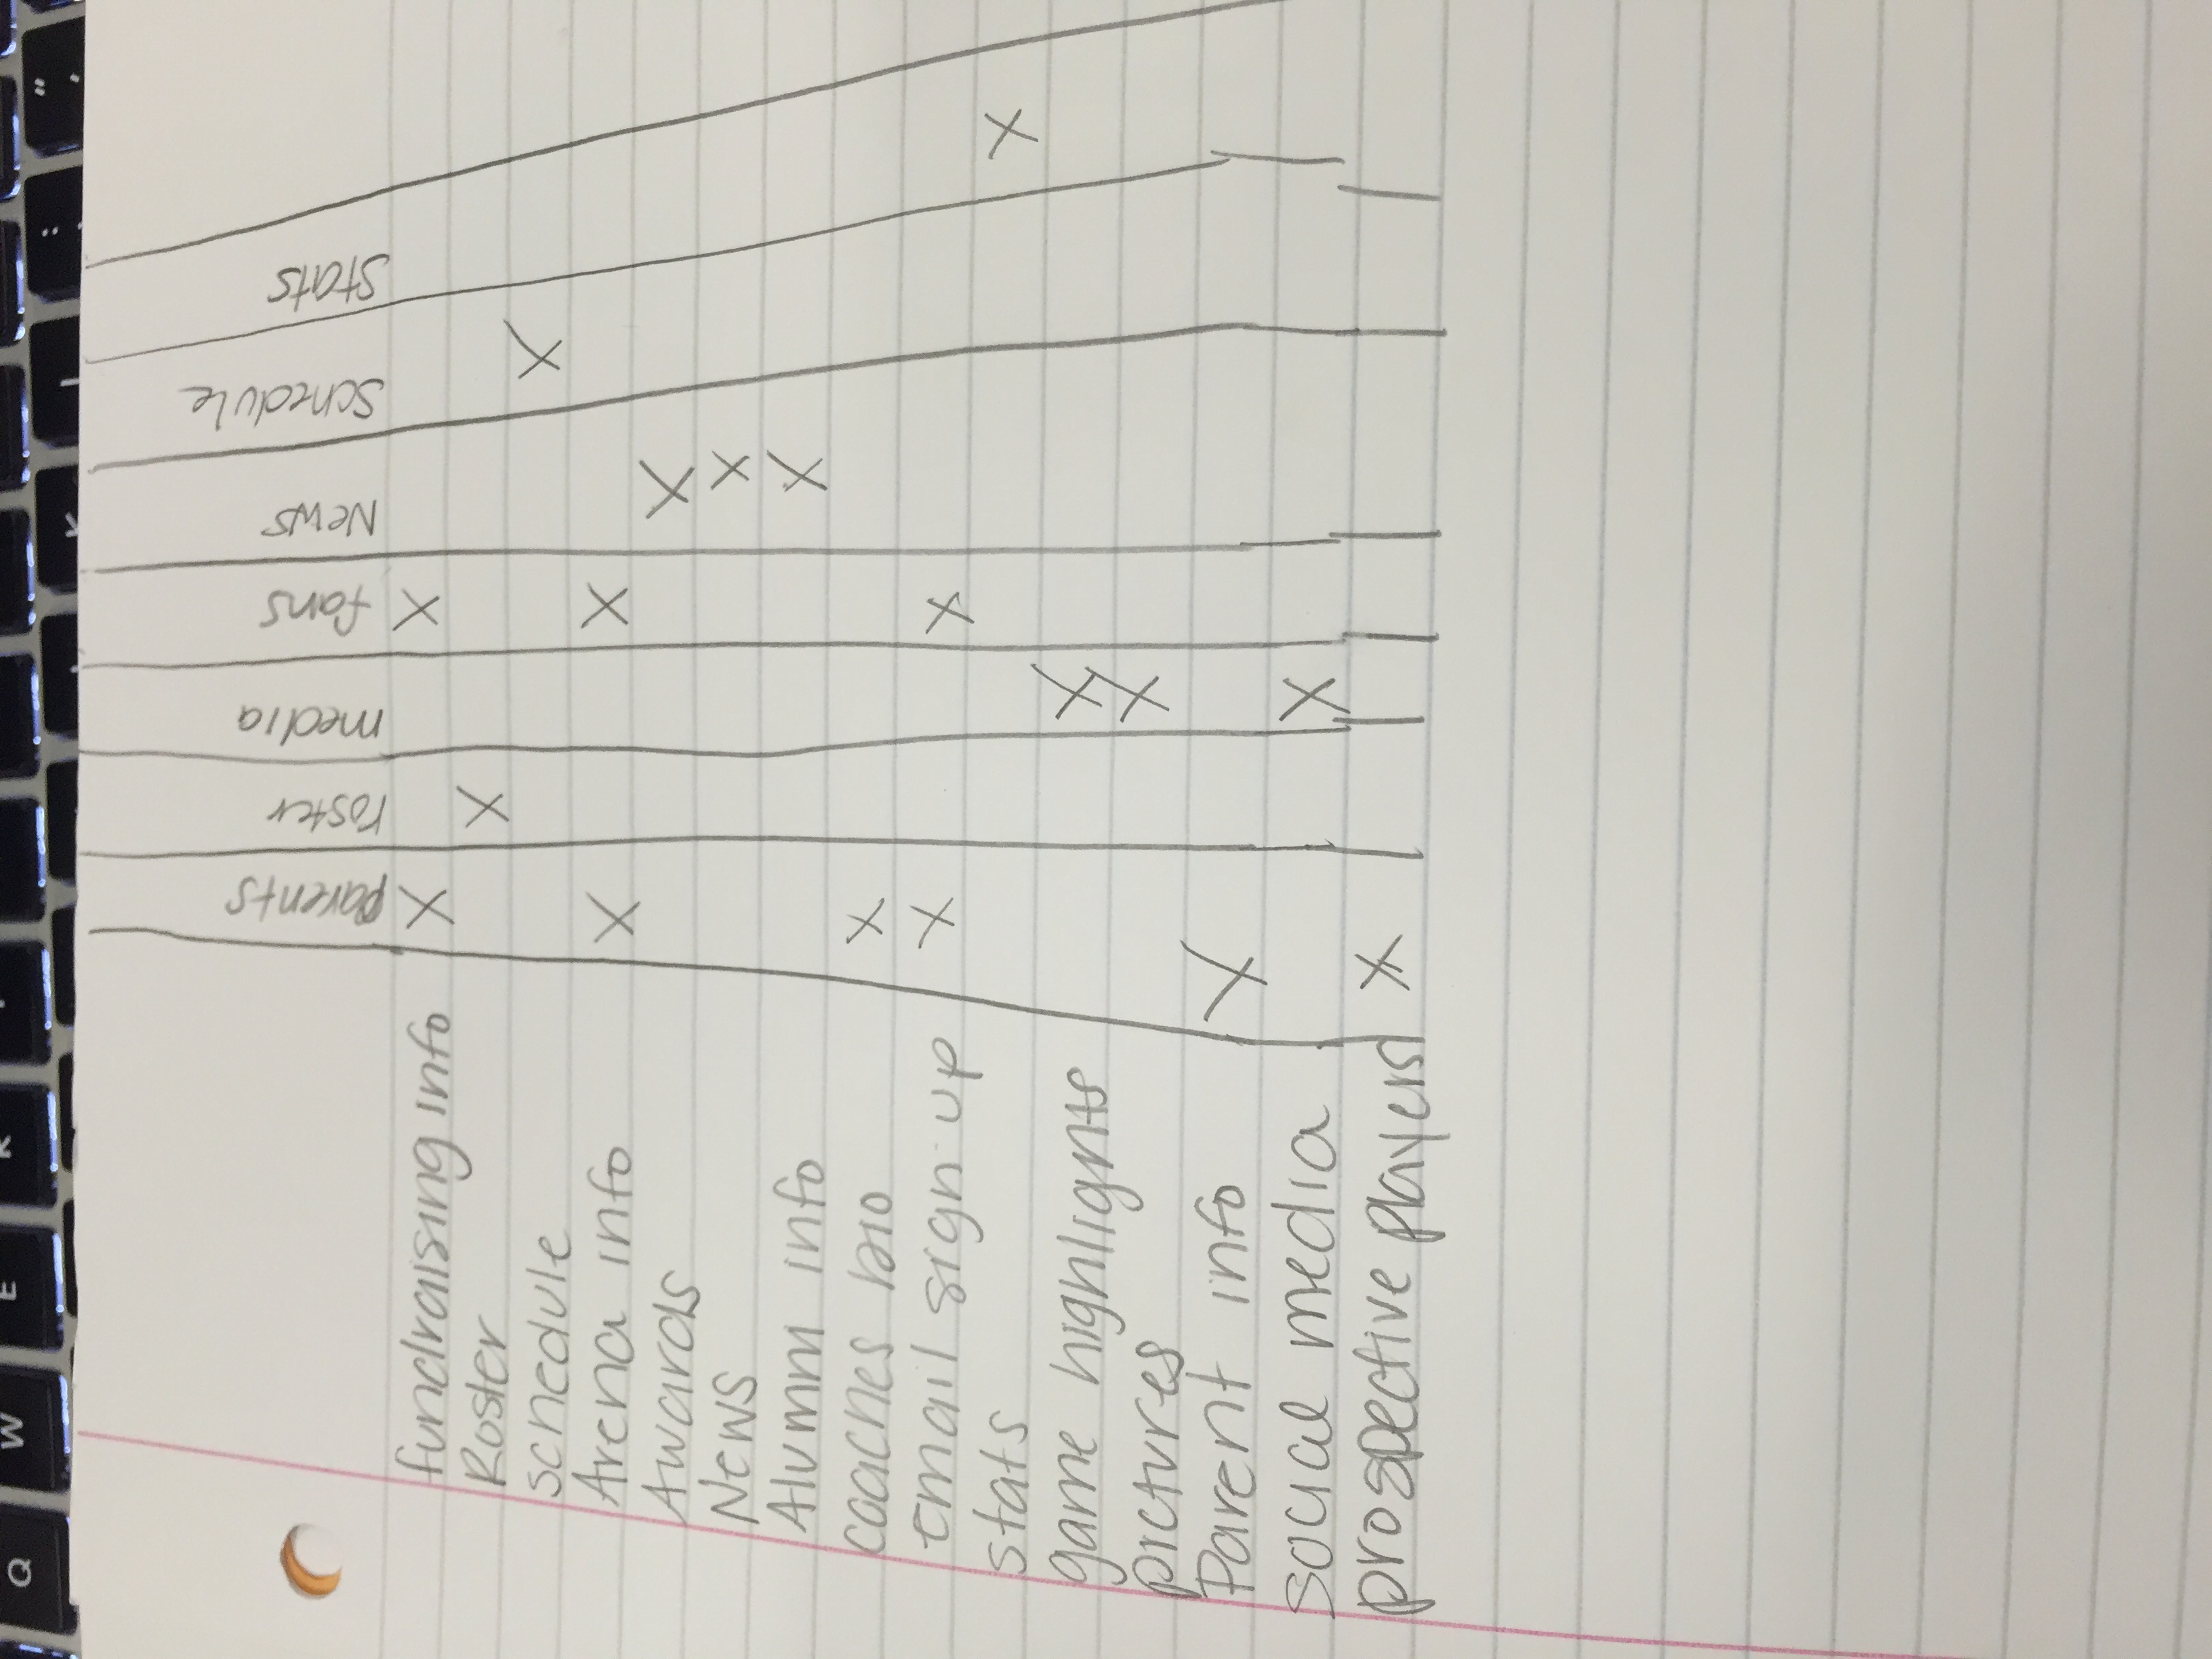 Q W E R
K L : ;
" '
parents roster media fans News Schedule Stats
fundraising info X X
Roster X
schedule X
Arena info X X
Awards X
News X
Alumni info X
coaches bio X
Email sign up X X
stats X
game highlights X
pictures X
Parent info X
social media X
prospective players X